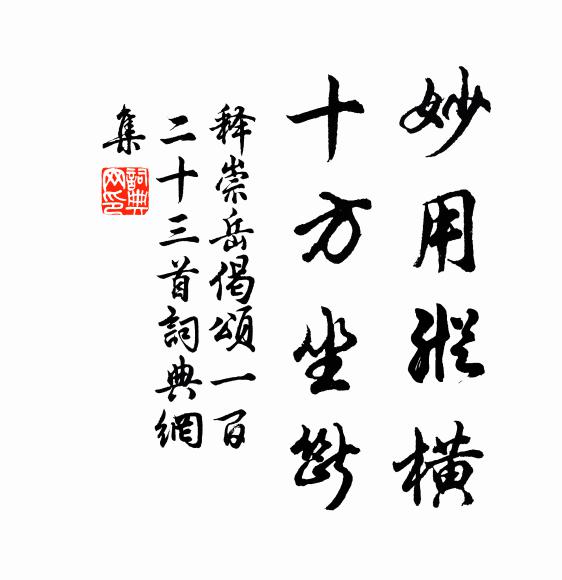 妙用縱橫
十方坐斷
释崇岳偈頌一百
二十三首詞典網
集
詞典
网印